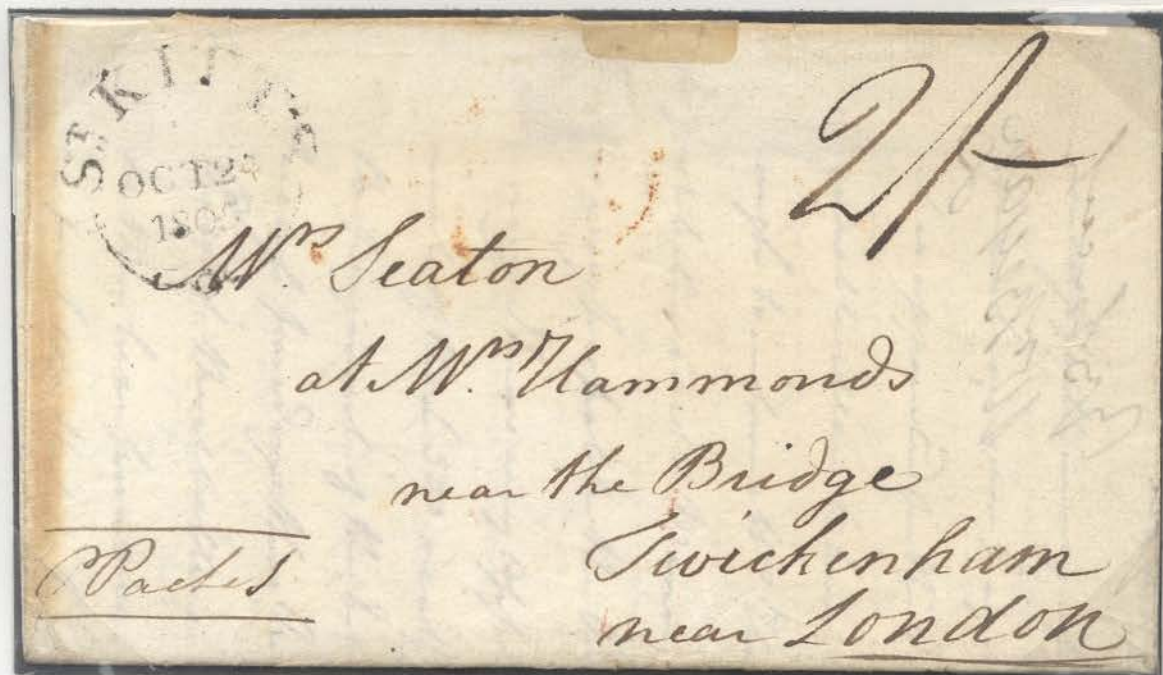 St KITTS
OCT 2
180
2/-
Mrs. Seaton
at Mrs. Hammonds
near the Bridge
Twickenham
near London
Packet